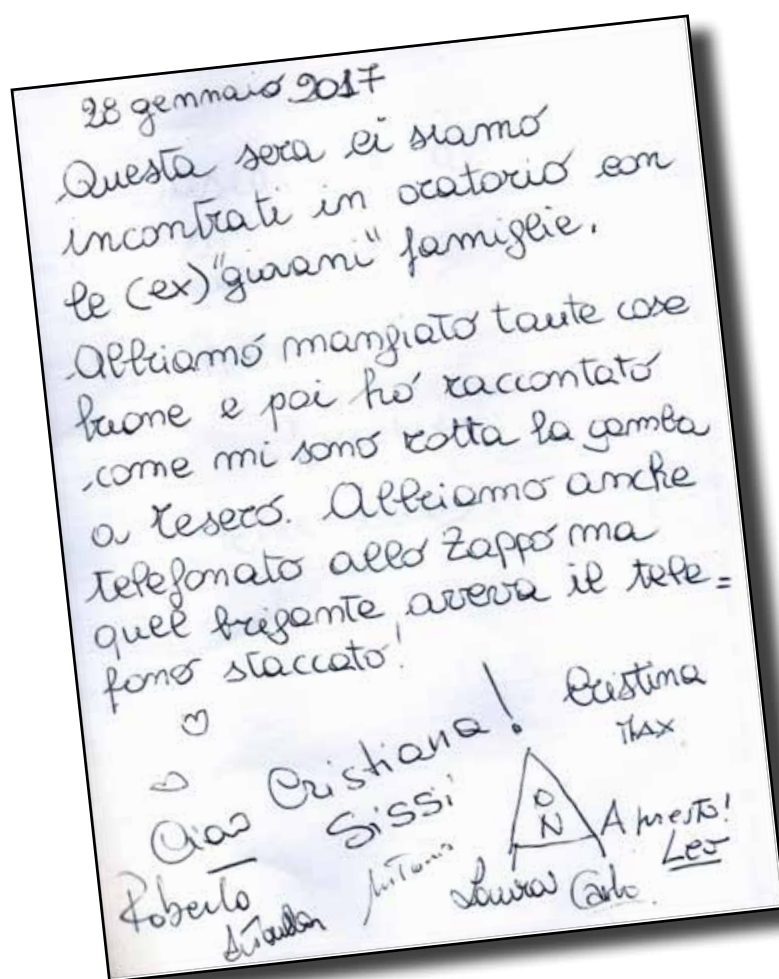 28 gennaio 2017
Questa sera ci siamo
incontrati in oratorio con
le (ex) "giovani" famiglie.
Abbiamo mangiato tante cose
buone e poi ho raccontato
come mi sono rotta la gamba
a Tesero. Abbiamo anche
telefonato allo Zappo ma
quel brigante aveva il tele=
fono staccato!
Cristina
MAX
Ciao Cristiana!
Sissi
A presto!
Leo
Roberto
Antonio
Laura Carlo